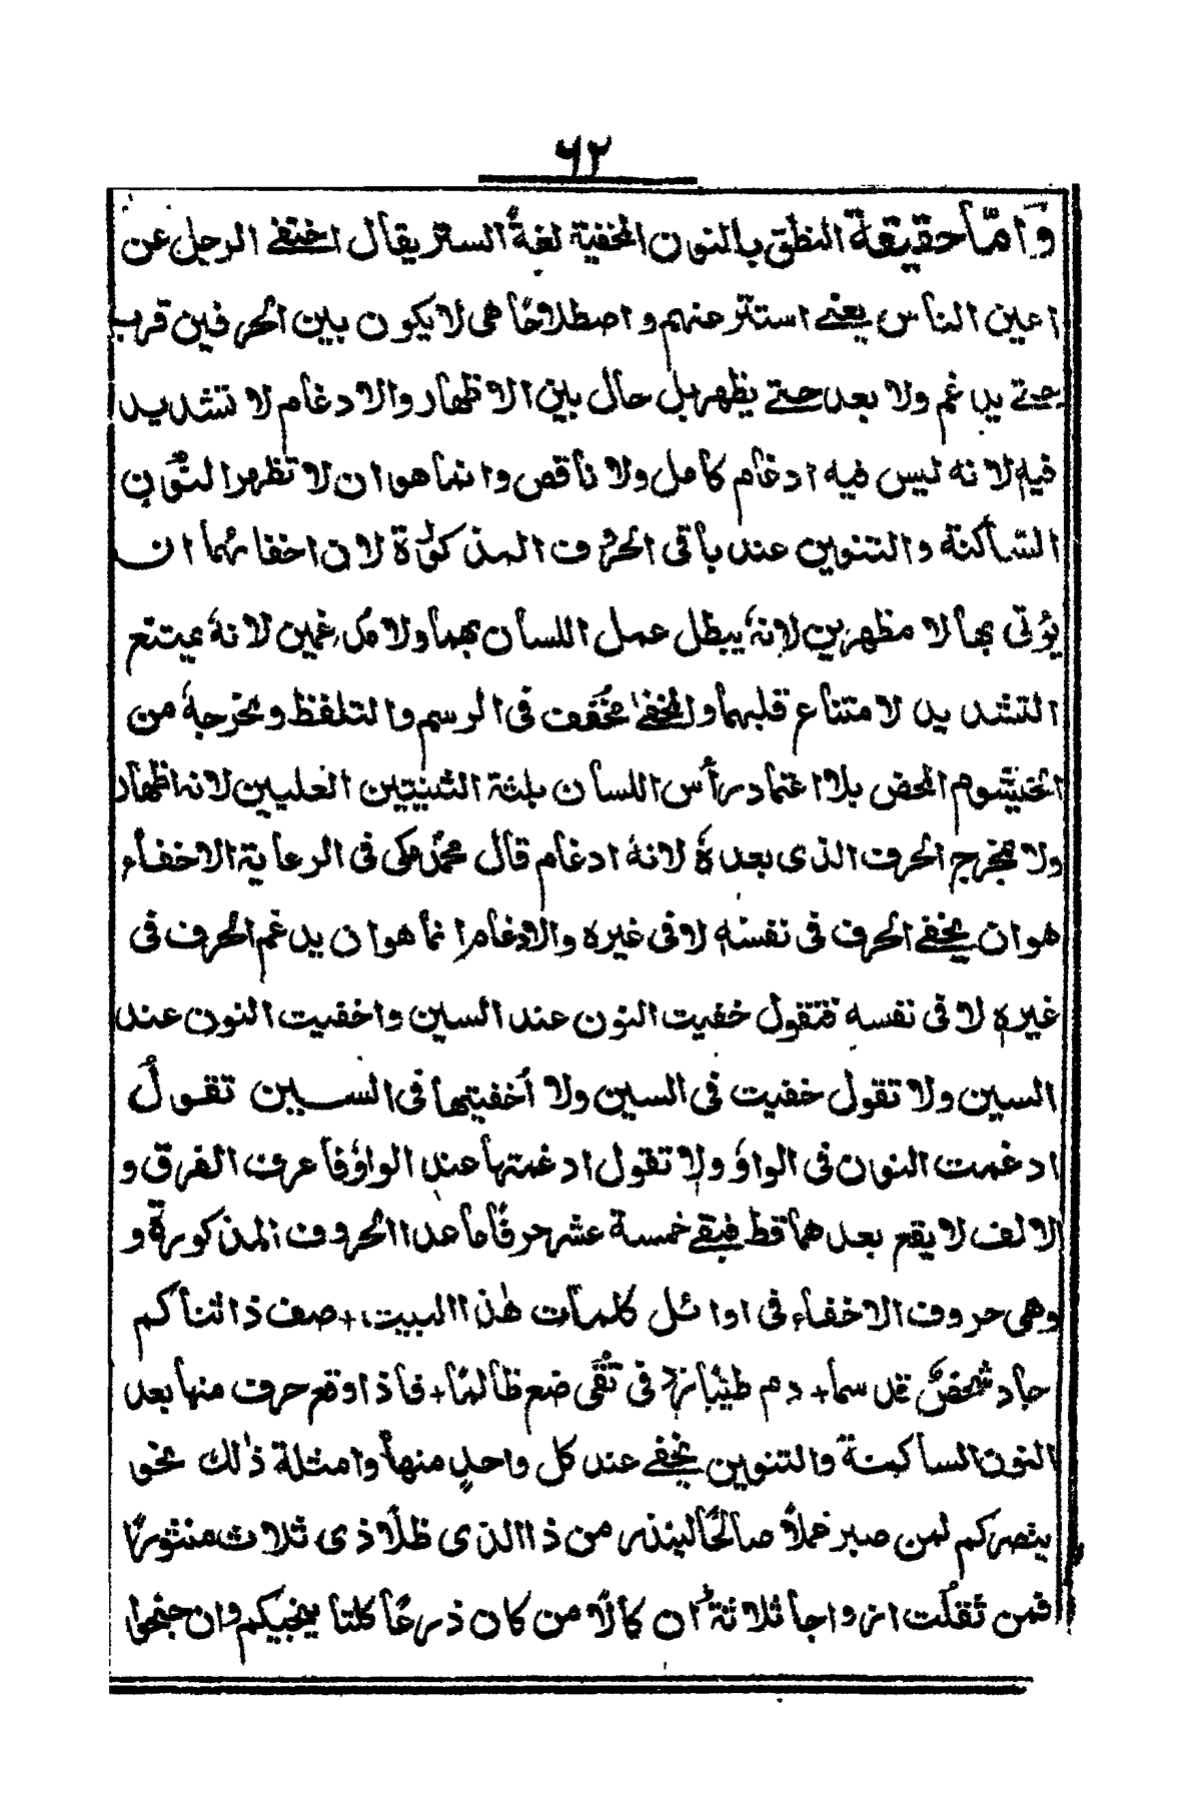 ٦٢
وَامّا حقيقة النطق بالنون المخفية لغةً الستر يقال اختفے الرجل عن
اعين الناس يعنے استتر عنهم و اصطلاحًا هى لا يكون بين الحرفين قرب
حتے يدغم ولا بعد حتے يظهر بل حال بين الاظهار والادغام لا تشديد
فيه لانه ليس فيه ادغام كامل ولا ناقص وانما هو ان لا تظهر النون
الساكنة والتنوين عند باقى الحروف المذكورة لان اخفائهما ان
يؤتى بها لا مظهرين لانه يبطل عمل اللسان بهما ولا مدغمين لانه يمتنع
التشديد لامتناع قلبهما والمخفےٰ مخفف فى الرسم والتلفظ ومخرجه من
الخيشوم المحض بلا اعتماد رأس اللسان بلثة الثنيتين العليين لانه اظهار
ولا بمخرج الحرف الذى بعده لانه ادغام قال محمد مكى فى الرعاية الاخفاء
هو ان يخفے الحرف فى نفسه لا فى غيره والادغام انما هو ان يدغم الحرف فى
غيره لا فى نفسه فتقول خفيت النون عند السين واخفيت النون عند
السين ولا تقول خفيت فى السين ولا أخفيتها فى السين تقول
ادغمت النون فى الواو ولا تقول ادغمتها عند الواو فاعرف الفرق و
الالف لا يقع بعدهما قط فبقے خمسة عشر حرفًا ما عدا الحروف المذكورة و
وهى حروف الاخفاء فى اوائل كلمات هٰذا البيت، + صف ذا ثنا كم
جاد شخصٌ قد سما + دم طيبًا زد فى تُقًى ضع ظالمًا + فاذا وقع حرف منها بعد
النون الساكنة والتنوين يخفے عند كل واحدٍ منها وامثلة ذٰلك نحو
ينصركم لمن صبر عملاً صالحًا لينذر من ذا الذى ظلًا ذى ثلاث منثورًا
فمن ثقلت ازواجا ثلاثة ان كالًا من كان ذرعًا كلتا ينجيكم وان جنحوا